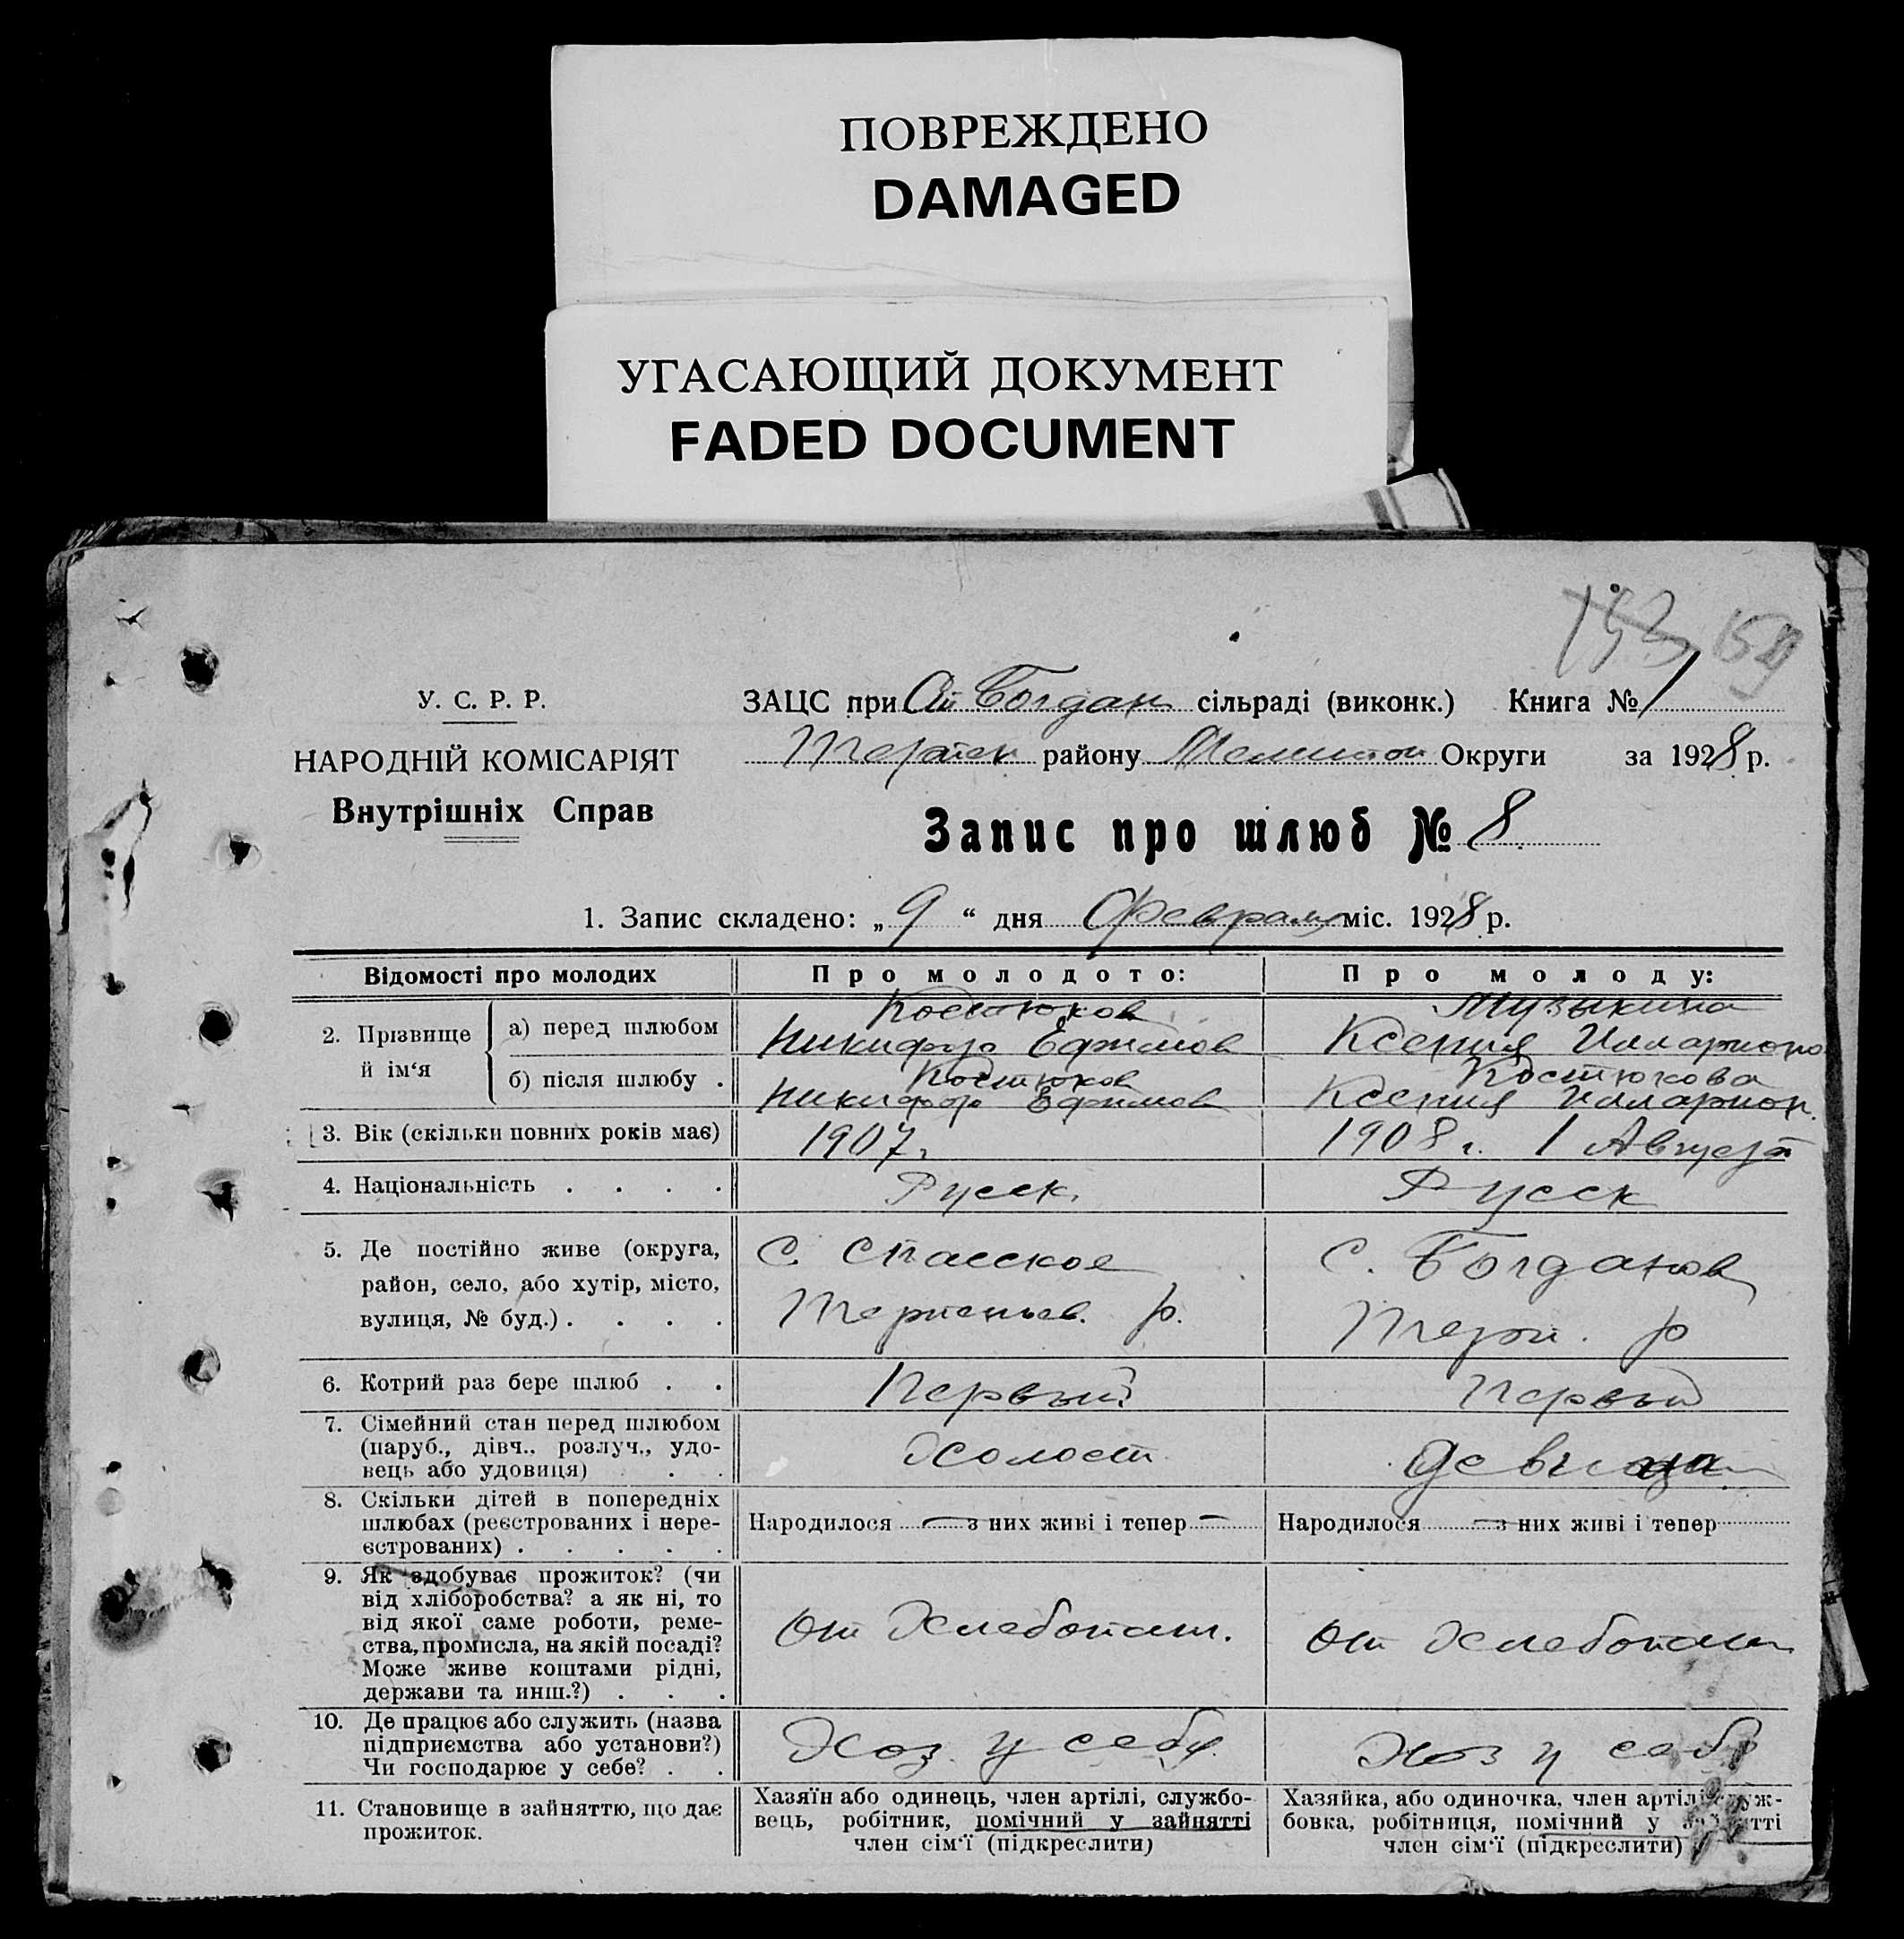 ПОВРЕЖДЕНО
DAMAGED
УГАСАЮЩИЙ ДОКУМЕНТ
FADED DOCUMENT
153 159
У. С. Р. Р.
НАРОДНІЙ КОМІСАРІЯТ
Внутрішніх Справ
ЗАЦС при Богдан сільраді (виконк.) Книга № 1
району Округи за 1928 р.
Запис про шлюб № 8
1. Запис складено: „9“ дня Февраля міс. 1928 р.
Відомості про молодих
Про молодого:
Про молоду:
2. Прізвище й ім‘я
а) перед шлюбом
Костюков
Никифор Ефимов
Музыкина
Ксения Илларионо
б) після шлюбу .
Костюков
Никифор Ефимов
Костюкова
Ксения Илларион.
3. Вік (скільки повних років має)
1907 г.
1908 г. 1 Августа
4. Національність . . . .
Русск.
Русск
5. Де постійно живе (округа,
район, село, або хутір, місто,
вулиця, № буд.) . . . .
С. Спасское
Терпеньев. р.
С. Богданов
Терп. р
6. Котрий раз бере шлюб . .
Первый
Первый
7. Сімейний стан перед шлюбом
(паруб., дівч., розлуч., удо-
вець або удовиця) . .
Холост
девица
8. Скільки дітей в попередніх
шлюбах (реєстрованих і нере-
єстрованих) . . . . .
Народилося — з них живі і тепер —
Народилося — з них живі і тепер
9. Як здобуває прожиток? (чи
від хліборобства? а як ні, то
від якої саме роботи, реме-
ства, промисла, на якій посаді?
Може живе коштами рідні,
держави та инш.?) . . .
От Хлебопаш.
От Хлебопаш
10. Де працює або служить (назва
підприємства або установи?)
Чи господарює у себе? . .
Хоз. у себя.
Хоз у себя
11. Становище в зайняттю, що дає
прожиток.
Хазяїн або одинець, член артілі, службо-
вець, робітник, помічний у зайнятті
член сім‘ї (підкреслити)
Хазяйка, або одиночка, член артілі служ-
бовка, робітниця, помічний у зайнятті
член сім‘ї (підкреслити)